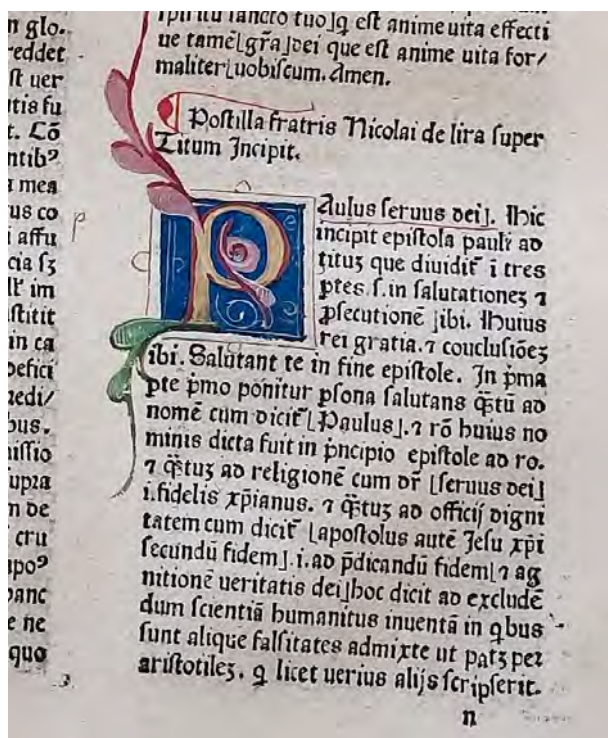 n glo.
reddet
ſt uer
tis fu
t. Lō
ntibꝰ
a mea
us co
i affu
cia ſꝫ
im
ſtitit
in ca
befici
medi/
bus.
iſſio
upra
m de
cru
apoꝰ
banc
e ne
quo
ſpiritu ſancto tuo⌋ꝙ eſt anime uita effecti
ue tamē⌊gr̄a⌋dei que eſt anime uita for/
maliter⌊uobiſcum. Amen.
Poſtilla fratris Nicolai de lira ſuper
Titum Incipit.
PAulus ſeruus dei⌋. Hic
incipit epiſtola pauli ad
tituꝫ que diuidit᷑ i tres
ꝑtes .ſ. in ſalutationeꝫ ⁊
ꝓſecutionē ⌋ibi. Huius
rei gratia. ⁊ coucluſiōeꝫ
ibi. Salutant te in fine epiſtole. In p̄ma
ꝑte p̄mo ponitur ꝑſona ſalutans q̄tū ad
nomē cum dicit᷑⌊Paulus⌋. ⁊ rō huius no
minis dicta fuit in p̄ncipio epiſtole ad ro.
⁊ q̄tuꝫ ad religionē cum dr̄ ⌊ſeruus dei⌋
i. fidelis xp̄ianus. ⁊ q̄tuꝫ ad officij digni
tatem cum dicit᷑ ⌊apoſtolus autē Jeſu xp̄i
ſecundū fidem⌋ .i. ad p̄dicandū fidem⌊⁊ ag
nitionē ueritatis dei⌋hoc dicit ad excludē
dum ſcientiā humanitus inuentā in qbus
ſunt alique falſitates admixte ut patꝫ per
ariſtotileꝫ. ꝙ licet uerius alijs ſcripſerit.
n